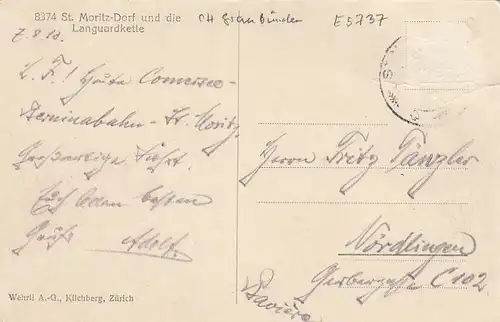 8374 St. Moritz-Dorf und die
Languardkette
CH Graubünden
E5737
7.8.13.
L. F.! Heute Comersee-
Berninabahn - St. Moritz,
Großartige Fahrt.
besten
Gruß Adolf.
Herrn Fritz Tänzler
Nördlingen
Gerbergasse C 102
Bavière
Wehrli A.-G., Kilchberg, Zürich